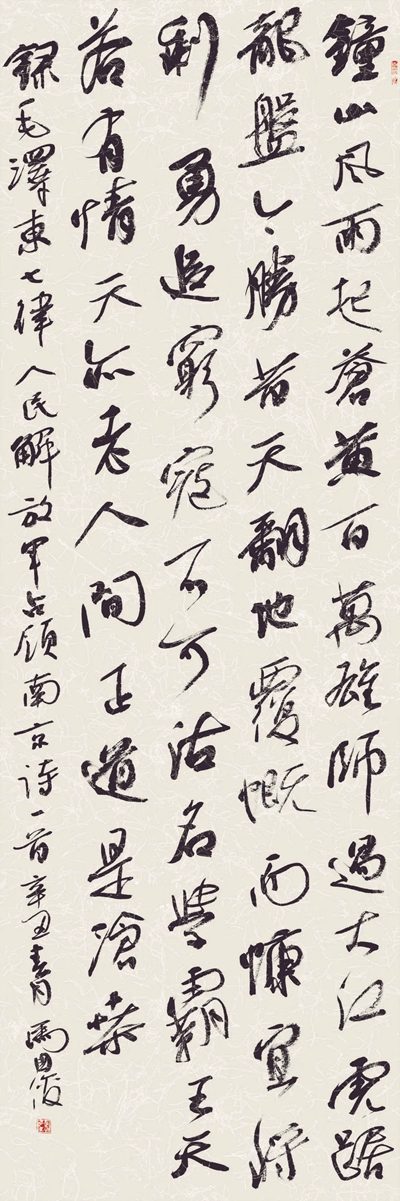 鐘山风雨起蒼黄百萬雄師過大江虎踞
龍盤今勝昔天翻地覆慨而慷宜将
剩勇追窮寇不可沽名學霸王天
若有情天亦老人間正道是滄桑
録毛澤東七律人民解放軍占領南京诗一首辛丑馬国俊